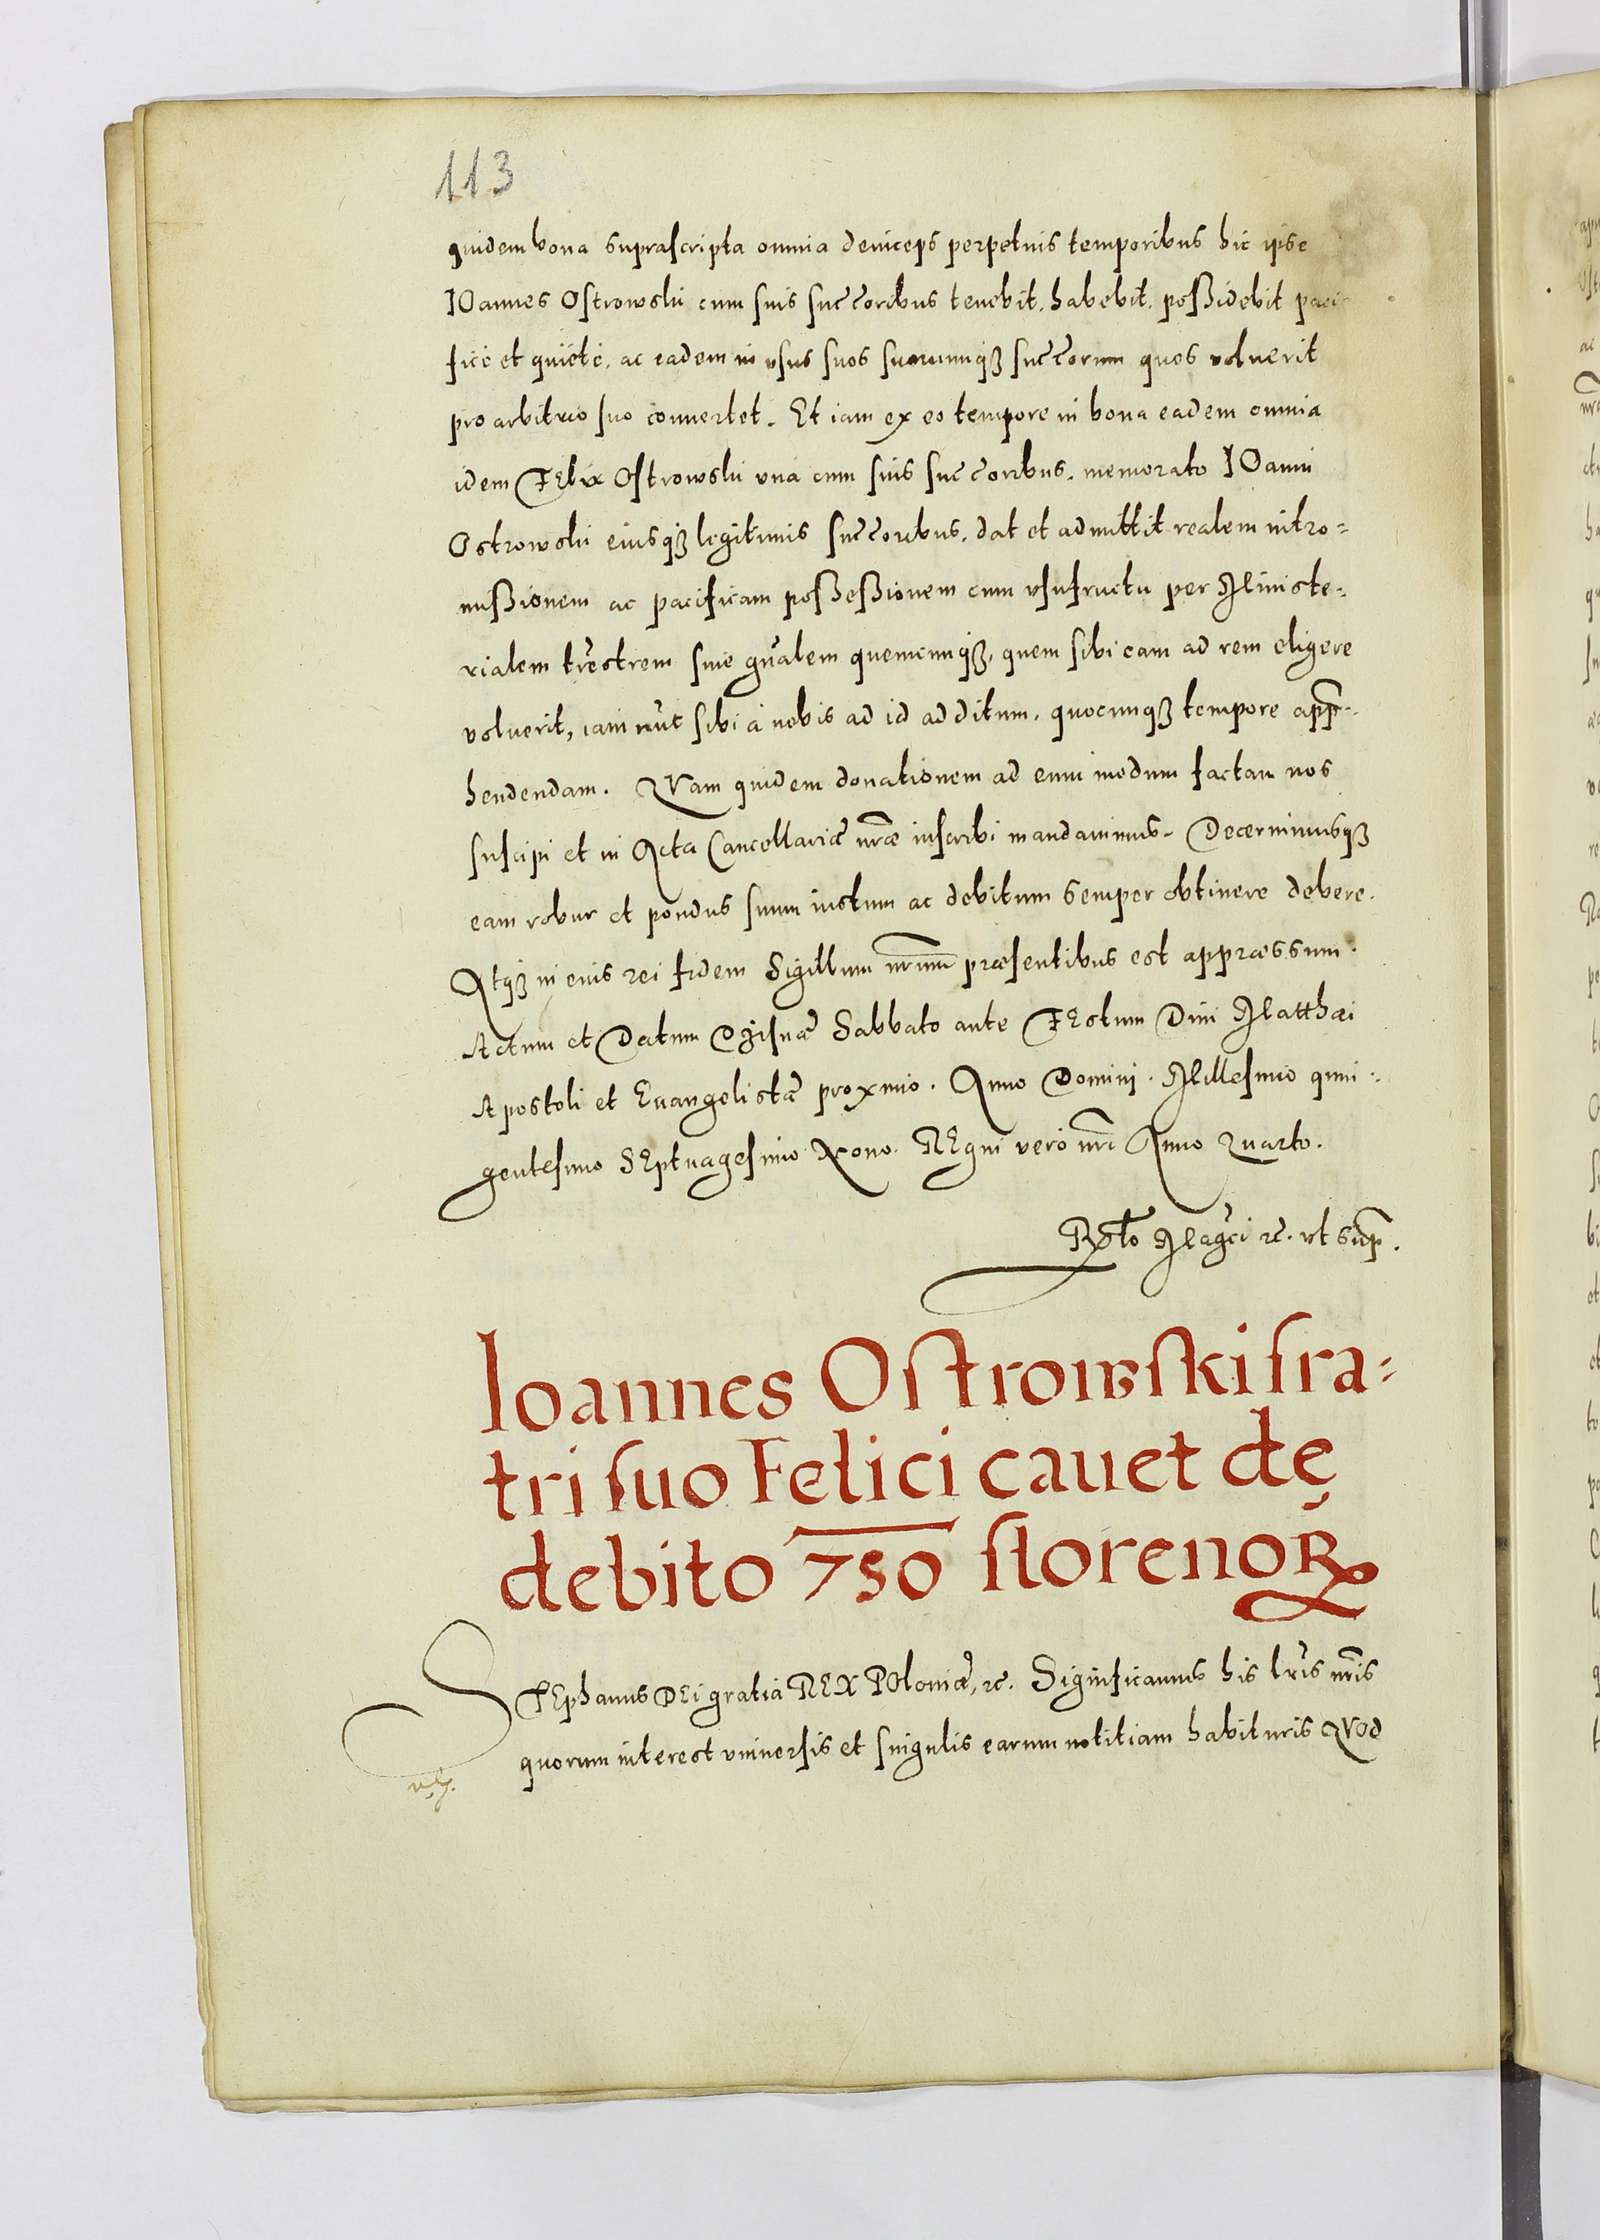 113
quidem bona suprascripta omnia deinceps perpetuis temporibus hic ipse
IOannes Ostrowski cum suis succ̃oribus tenebit, habebit, possidebit paci-
ficè et quietè, ac eadem in vsus suos suorumq́3 succ̃orum quos voluerit
pro arbitrio suo conuertet. Et iam ex eo tempore in bona eadem omnia
idem FElix Ostrowski vnà cum suis succ̃oribus, memorato IOanni
Ostrowski eiusq́3 legitimis succ̃oribus, dat et admittit realem intro=
missionem ac pacificam possessionem cum vsufructu per Ministe-
rialem tr̃estrem siue gñalem quemcunq́3, quem sibi eam ad rem eligere
voluerit, iam nũc sibi à nobis ad id additum, quocunq́3 tempore app̃-
hendendam. QVam quidem donationem ad eum modum factam nos
suscipi et in Acta Cancellariæ nr̃æ inscribi mandauimus. Decernimusq́3
eam robur et pondus suum iustum ac debitum semper obtinere debere.
Atq́3 in eius rei fidem Sigillum nr̃um præsentibus est appræssum.
Actum et Datum Dzisnæ Sabbato ante FEstum Diui Matthæi
Apostoli et Euangelistæ proximo. Anno Domini. Millesimo quin-
gentesimo SEptuagesimo Nono. REgni verò nr̃i Anno Quarto.
R̃sto Mag̃ci rc̃. vt sup̃.
Ioannes Ostrowski fra-
tri suo Felici cauet de
debito 750 florenoꝝ
STEphanus DEi gratia REX POloniæ, rc̃. Significamus his lr̃is nr̃is
quorum interest vniuersis et singulis earum notitiam habituris QVod